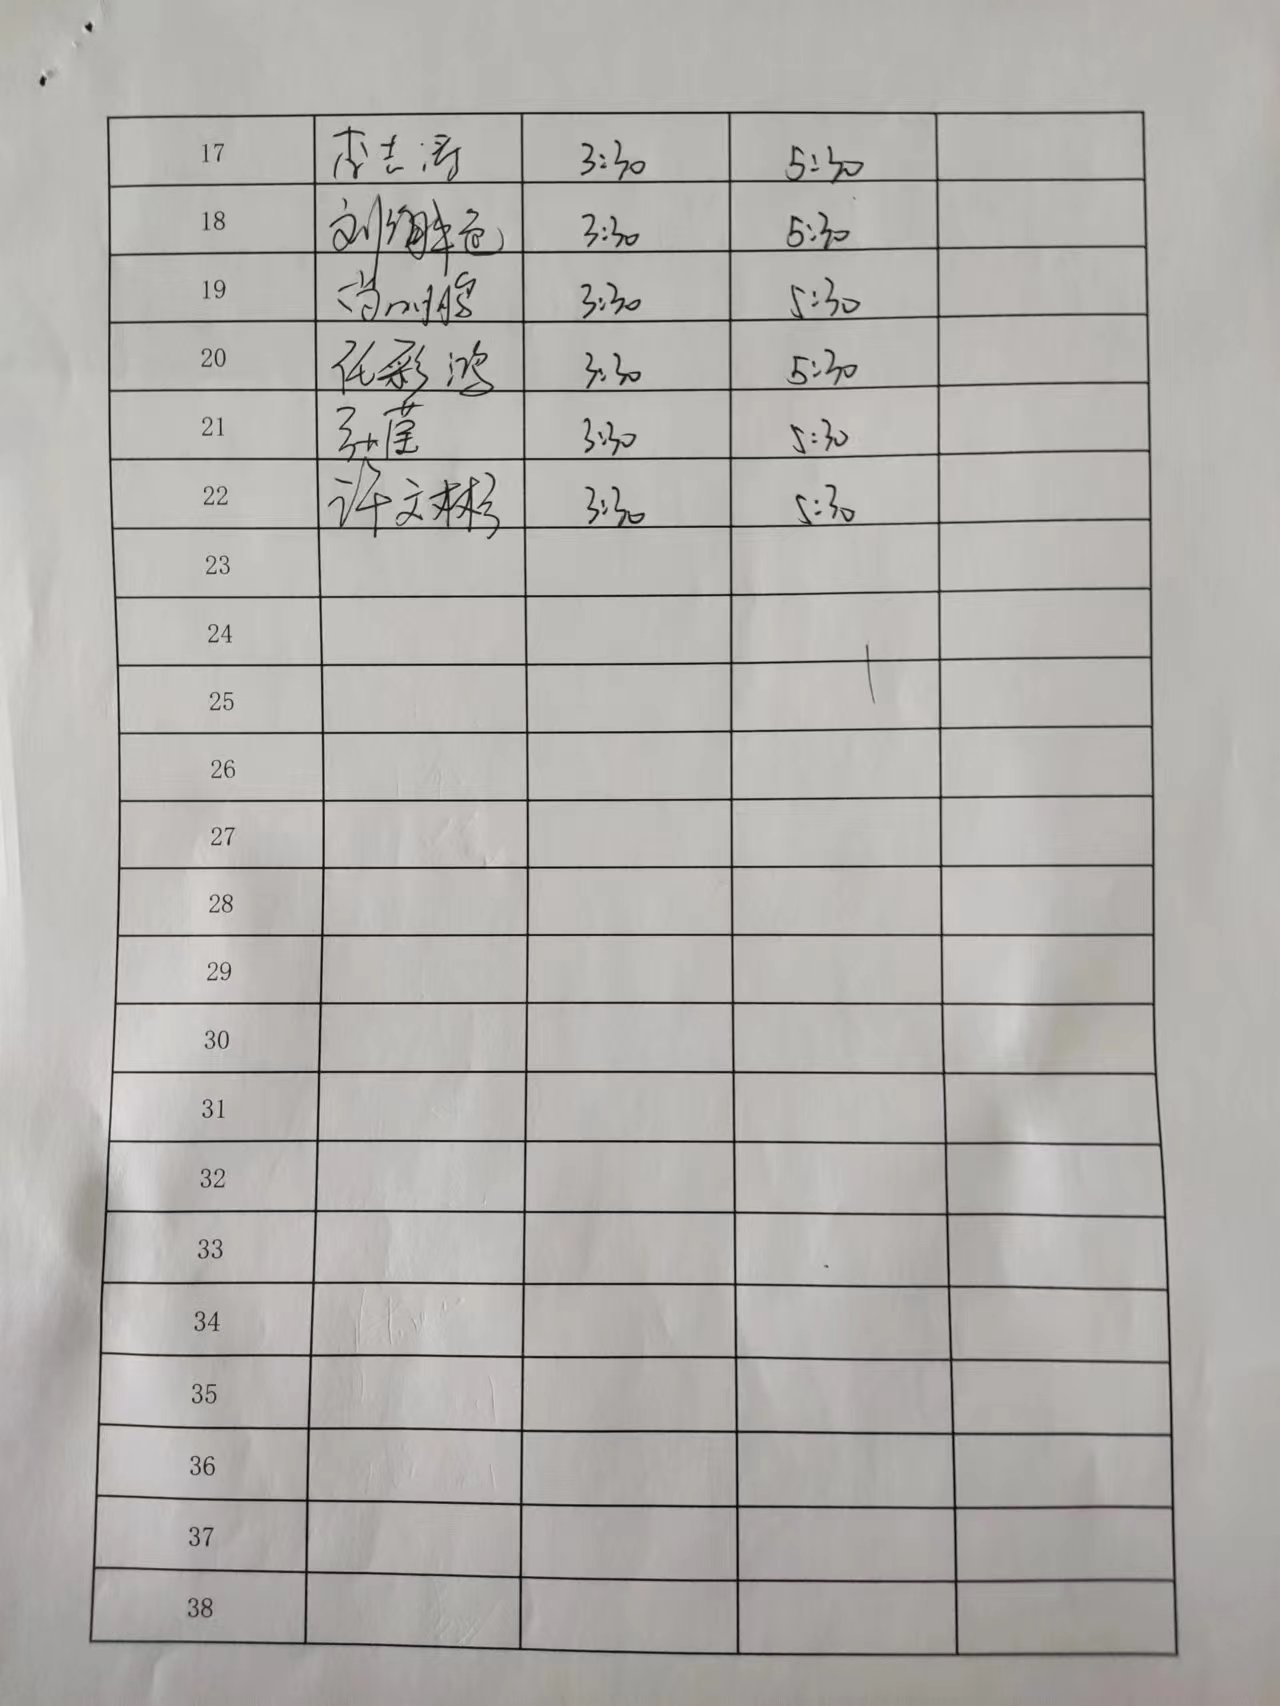 17 李志涛 3:30 5:30
18 3:30 5:30
19 3:30 5:30
20 任彩鸿 3:30 5:30
21 孙莹 3:30 5:30
22 许文彬 3:30 5:30
23
24
25
26
27
28
29
30
31
32
33
34
35
36
37
38